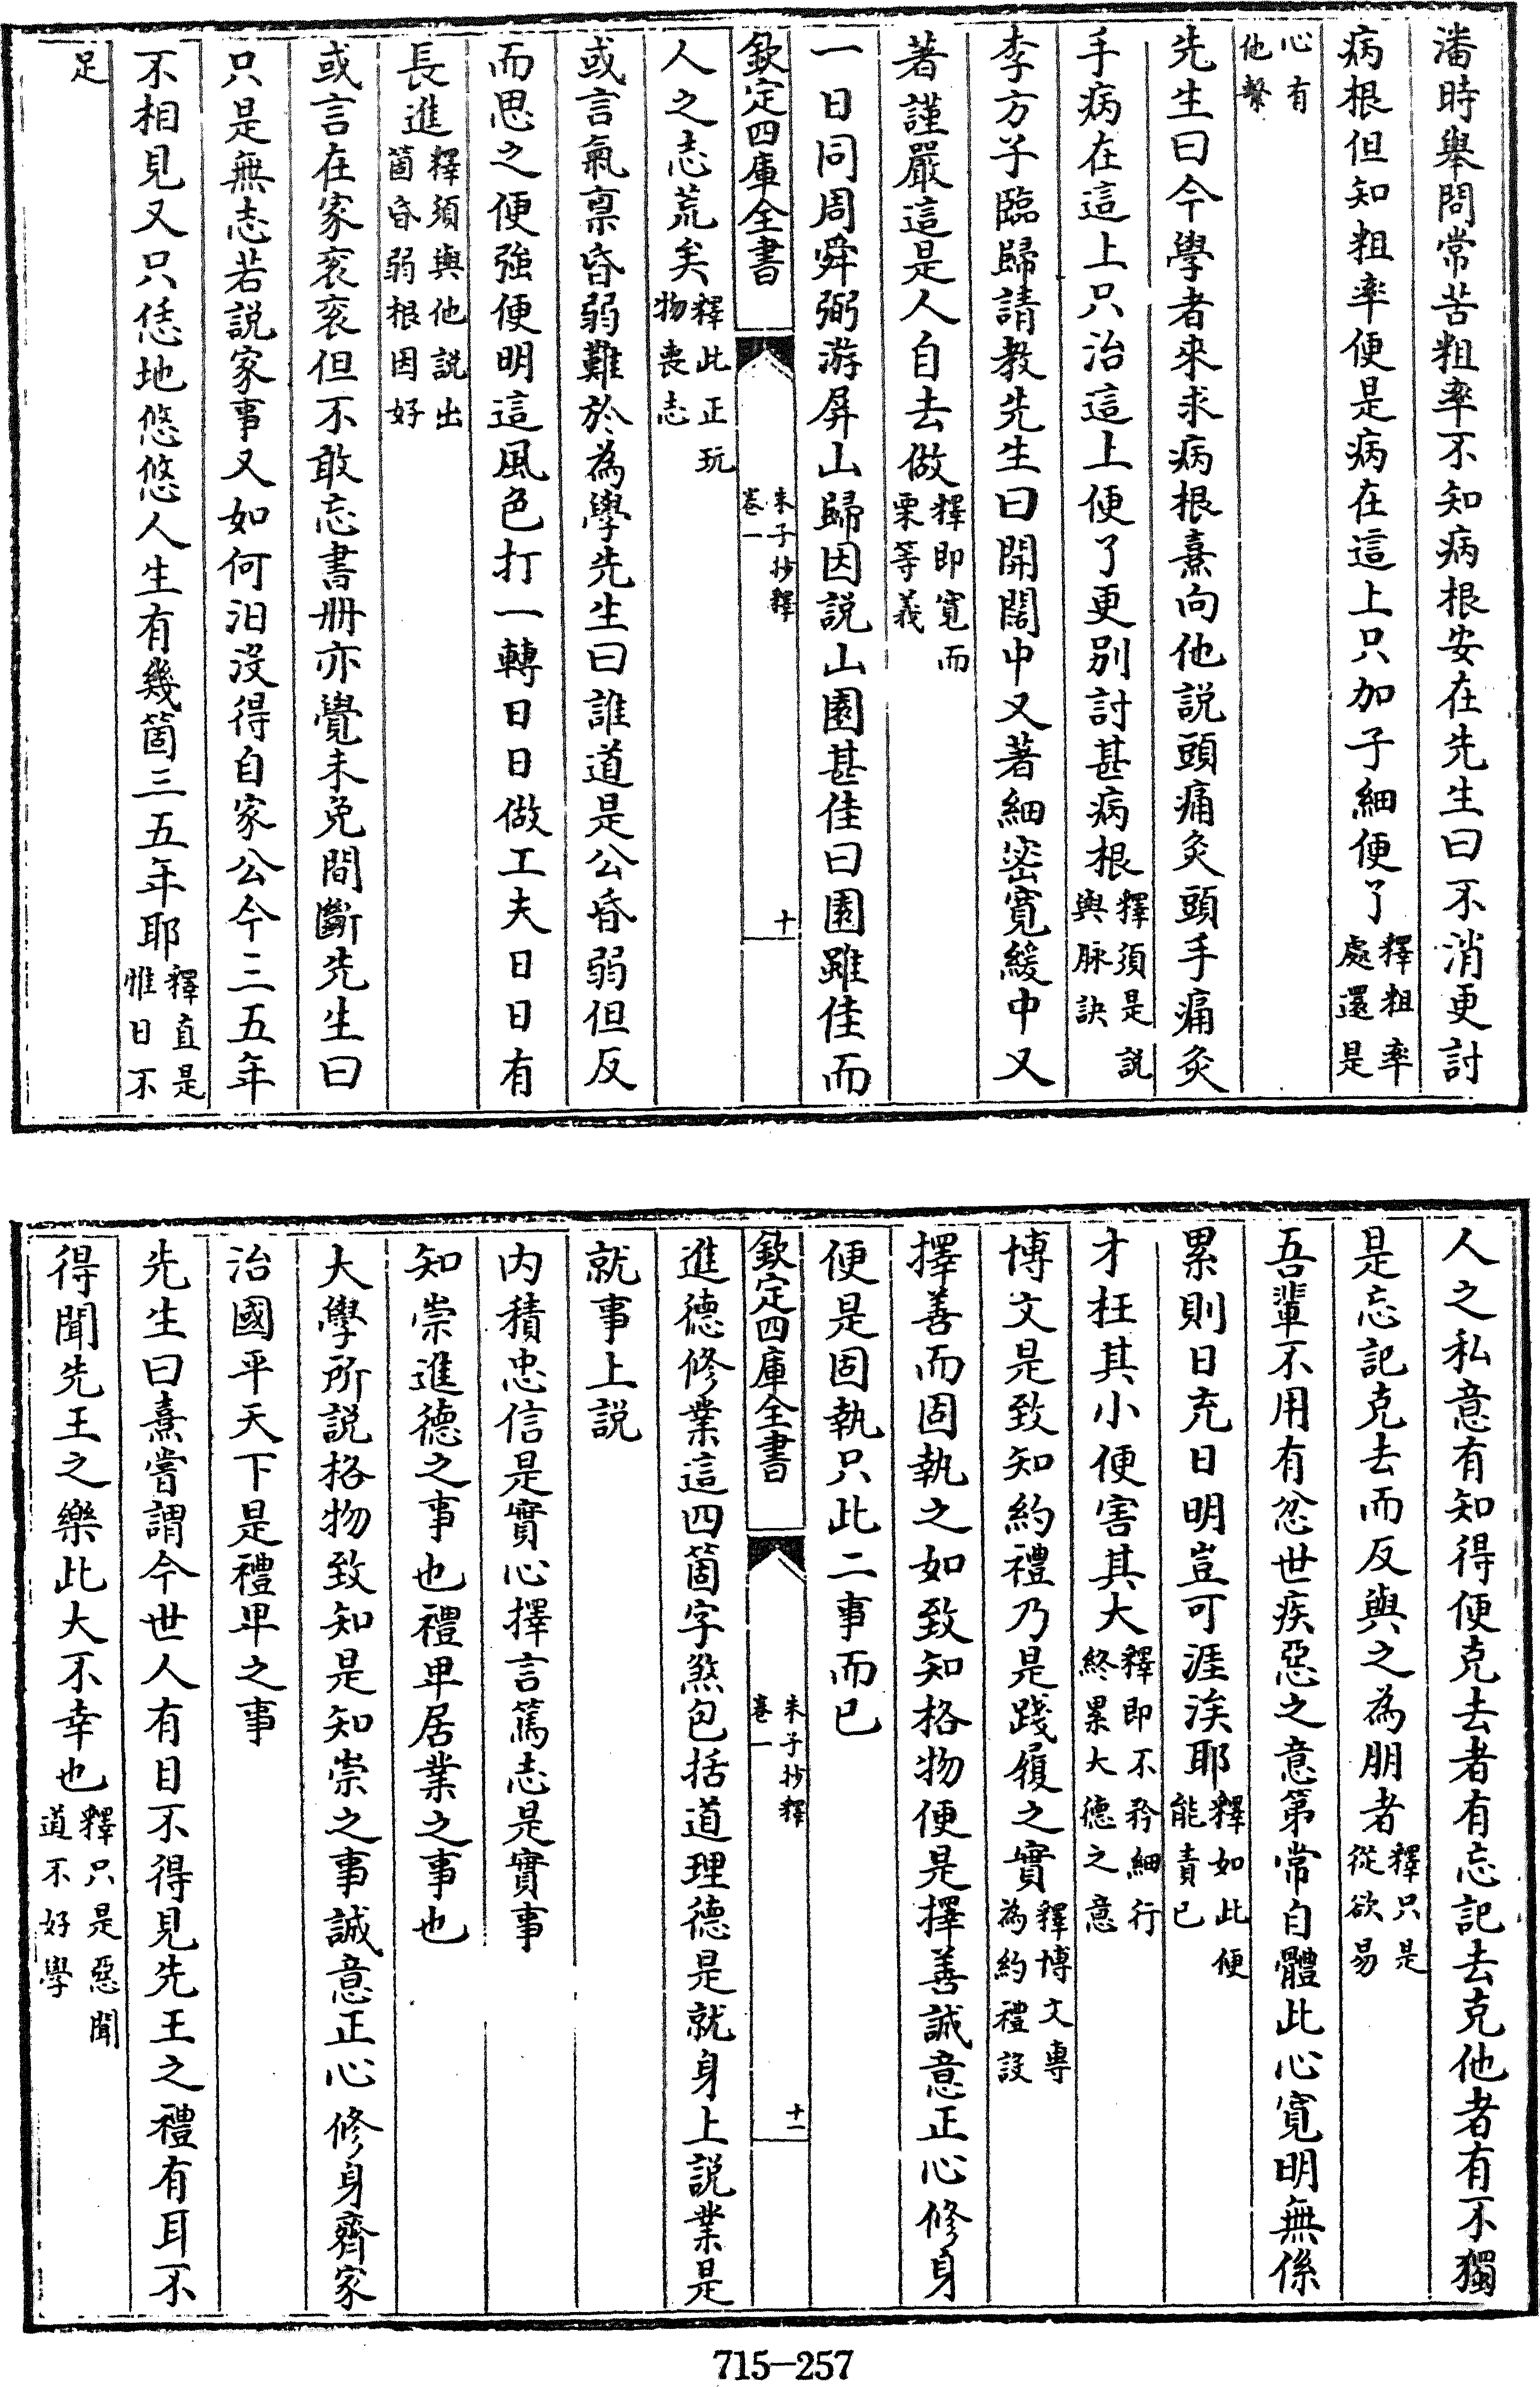 潘時舉問常苦粗率不知病根安在先生曰不消更討
病根但知粗率便是病在這上只加子細便了釋粗率處還是
心有他繫
先生曰今學者來求病根熹向他説頭痛灸頭手痛灸
手病在這上只治這上便了更别討甚病根釋須是説與脉訣
李方子臨歸請教先生曰開闊中又著細密寛緩中又
著謹嚴這是人自去做釋即寛而栗等義
一日同周舜弼游屏山歸因説山園甚佳曰園雖佳而
欽定四庫全書
朱子抄釋
卷一
十
人之志荒矣釋此正玩物喪志
或言氣禀昏弱難於為學先生曰誰道是公昏弱但反
而思之便強便明這風色打一轉日日做工夫日日有
長進釋須與他説出箇昏弱根因好
或言在家衮衮但不敢忘書册亦覺未免間斷先生曰
只是無志若説家事又如何汨沒得自家公今三五年
不相見又只恁地悠悠人生有幾箇三五年耶釋直是惟日不
足
人之私意有知得便克去者有忘記去克他者有不獨
是忘記克去而反與之為朋者釋只是從欲易
吾輩不用有忿世疾惡之意第常自體此心寛明無係
累則日充日明豈可涯涘耶釋如此便能責已
才枉其小便害其大釋即不矜細行終累大德之意
博文是致知約禮乃是踐履之實釋博文専為約禮設
擇善而固執之如致知格物便是擇善誠意正心修身
便是固執只此二事而已
欽定四庫全書
朱子抄釋
卷一
十一
進德修業這四箇字煞包括道理德是就身上説業是
就事上説
内積忠信是實心擇言篤志是實事
知崇進德之事也禮卑居業之事也
大學所説格物致知是知崇之事誠意正心修身齊家
治國平天下是禮卑之事
先生曰熹嘗謂今世人有目不得見先王之禮有耳不
得聞先王之樂此大不幸也釋只是惡聞道不好學
715-257